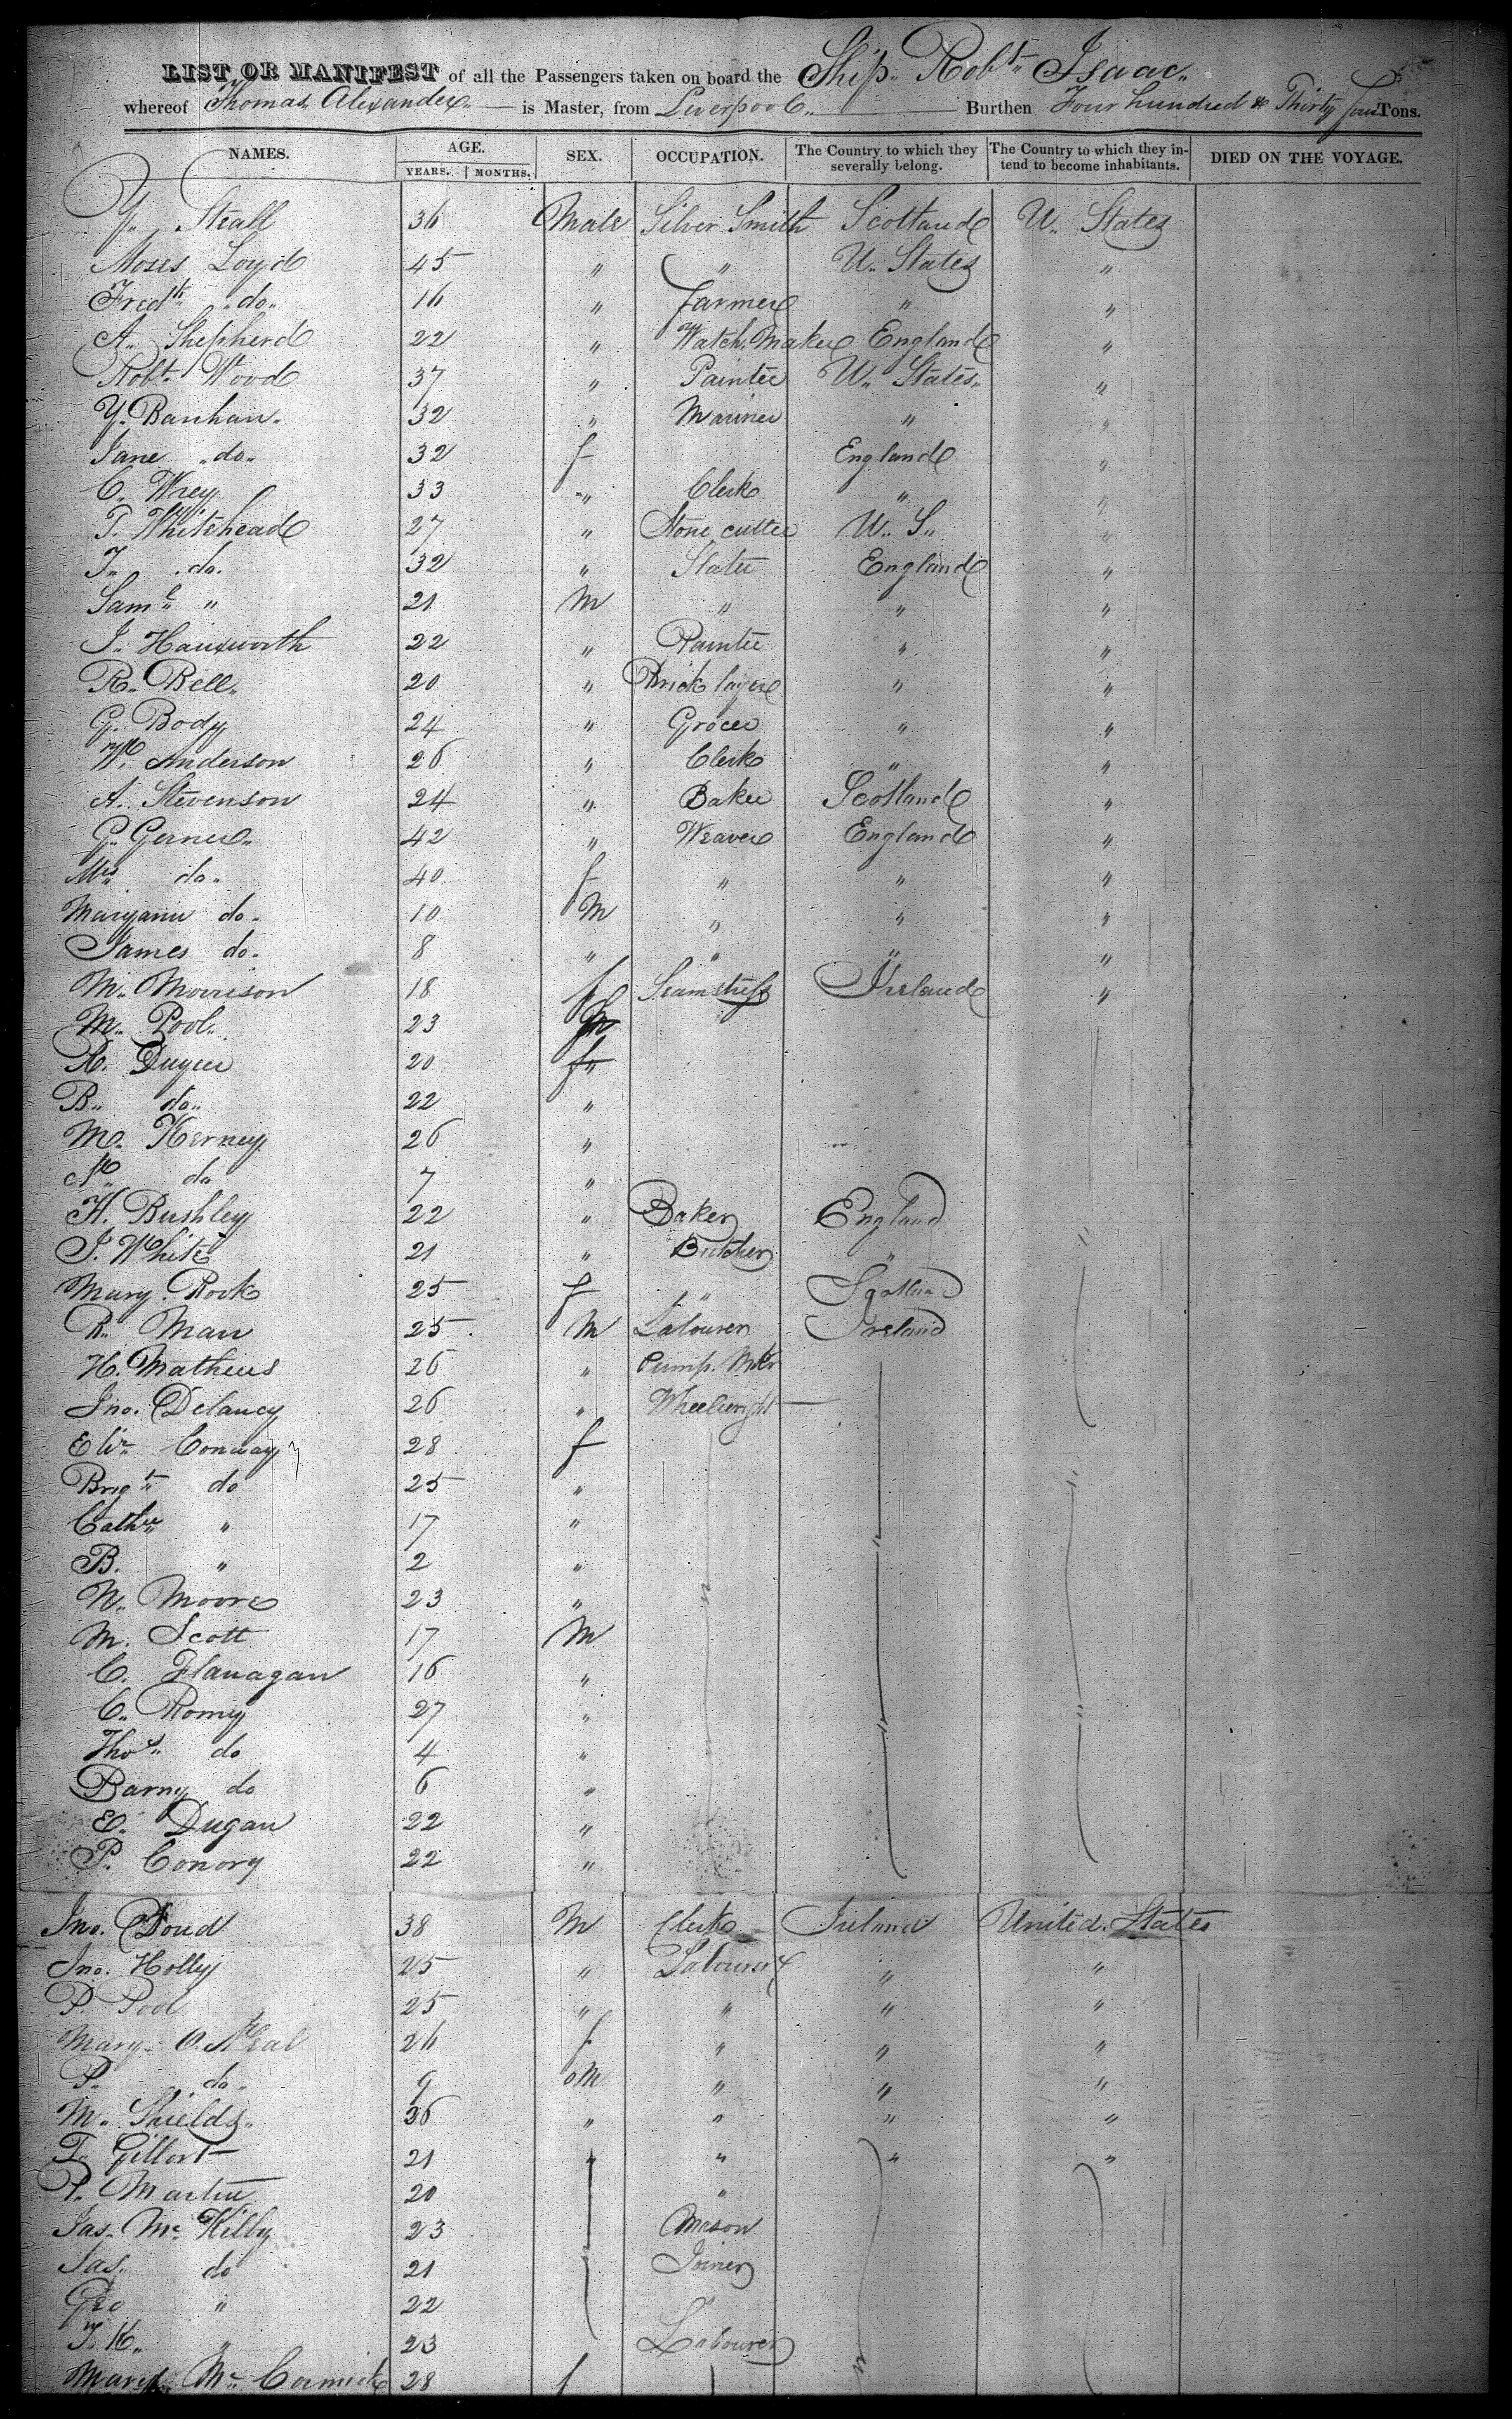 LIST OR MANIFEST of all the Passengers taken on board the Ship Robt. Isaac
whereof Thomas Alexander is Master, from Liverpool Burthen Four hundred & Thirty four Tons.
NAMES. AGE. SEX. OCCUPATION. The Country to which they severally belong. The Country to which they intend to become inhabitants. DIED ON THE VOYAGE.
YEARS. MONTHS.
Y. Steall 36 Male Silver Smith Scotland U. States
Moses Loyd 45 " " U. States "
Fredk. do. 16 " farmer " "
A. Shepherd 22 " Watch Maker England "
Robt. Wood 37 " Painter U. States "
Y. Banhan 32 " Mariner " "
Jane do. 32 f England "
C. Wrey 33 " Clerk " "
T. Whitehead 27 " Stone cutter U. S. "
J. do. 32 " Slater England "
Saml. " 21 M " " "
J. Hauxworth 22 " Painter " "
R. Bell 20 " Brick layer " "
G. Body 24 " Grocer " "
Wm. Anderson 26 " Clerk " "
A. Stevenson 24 " Baker Scotland "
G. Gerner 42 " Weaver England "
Mrs do. 40 f " " "
Maryann do. 10 M " " "
James do. 8 " " " "
M. Morrison 18 f Seamstress Ireland "
M. Pool 23
R. Duyer 20 f"
B. do. 22 "
M. Kerney 26 "
N. do 7 "
H. Bushley 22 " Baker England
J. White 21 " Butcher " "
Mary Rook 25 f " Scotland
R. Man 25 M Labourer Ireland
H. Matheus 26 " Pump. Mkr
Jno. Delancy 26 " Wheelwright
Eliz. Conway 28 f
Brigt. do 25 " "
Cathe. " 17 "
B. " 2 " "
N. Moore 23 " "
M. Scott 17 M
C. Flanagan 16 "
C. Romy 27 " " "
Thos. do 4 "
Barny do 6 "
E. Dugan 22 "
P. Conory 22 "
Jno. Doud 38 M Clerk Ireland United States
Jno. Holly 25 " Labourer " "
P. Pool 25 " " " "
Mary O.Neal 26 f " " "
P. do. 9 M " " "
M. Shields 26 " " " "
T. Gillort 21 " " " "
P. Martin 20 "
Jas. Mc Kilby 23 Mason
Jas. do 21 " Joiner
Geo " 22
J. K. " 23 Labourer
Mary Mc Cormick 28 f "